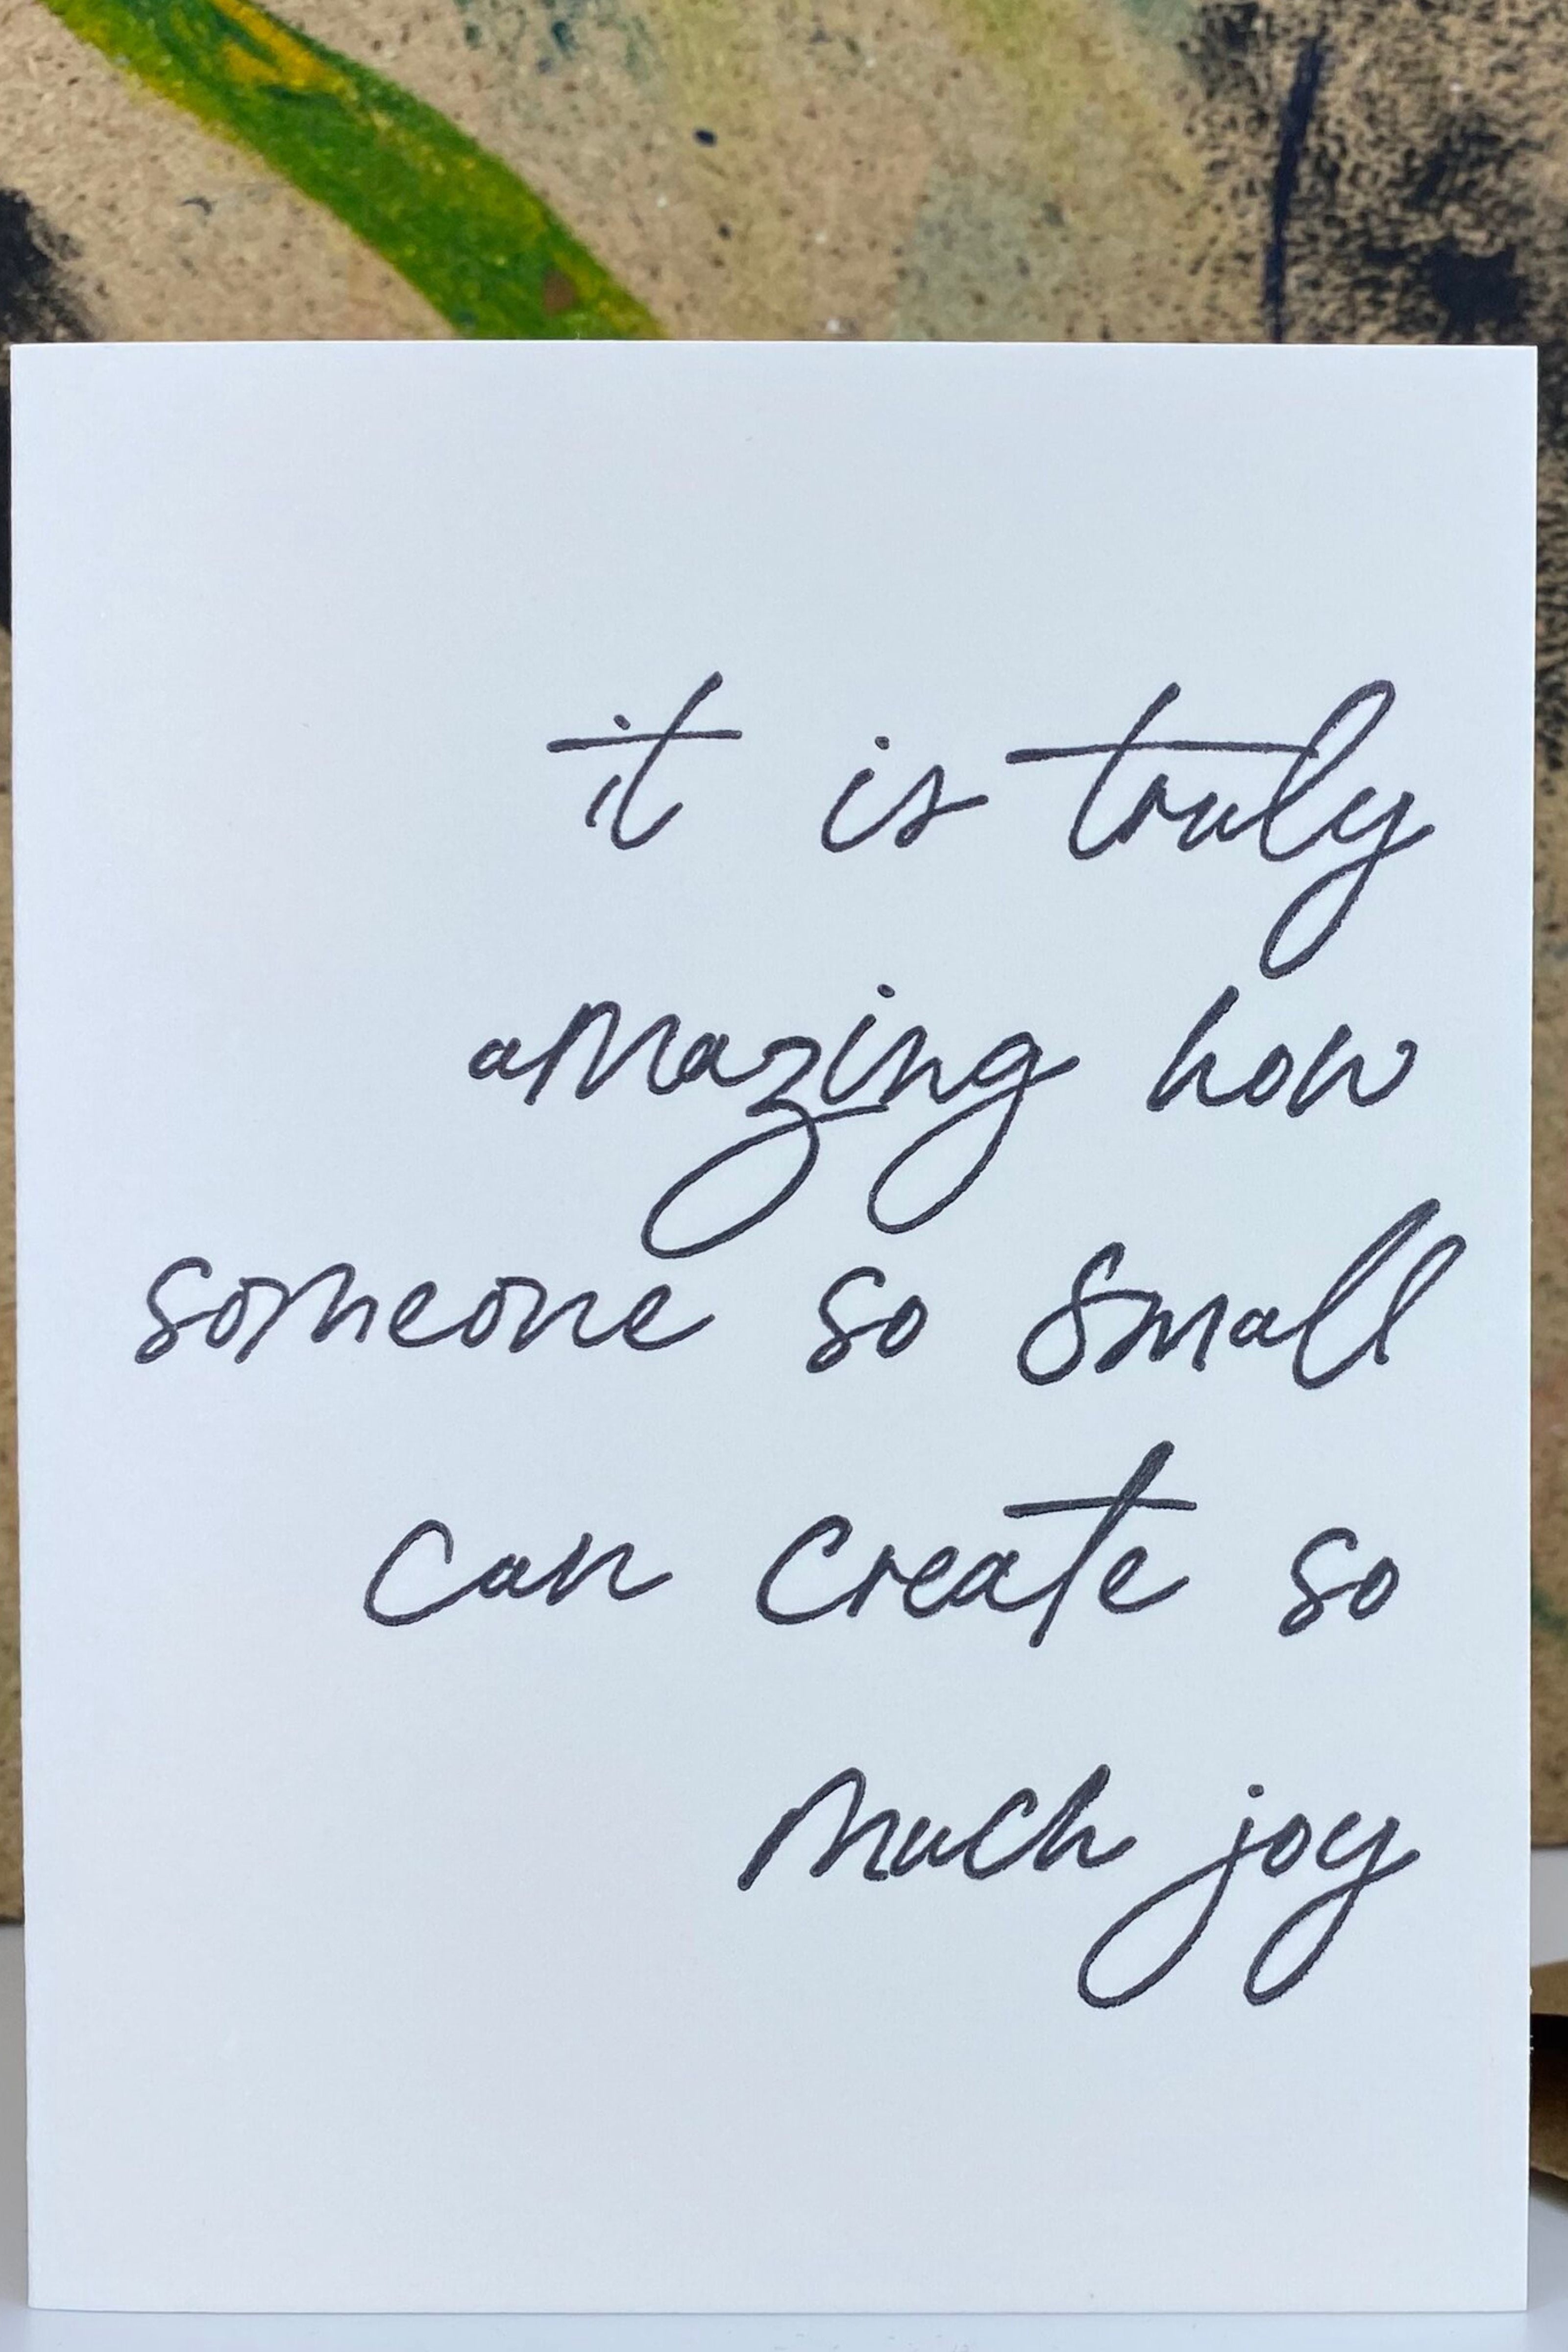 it is truly
amazing how
someone so small
can create so
much joy